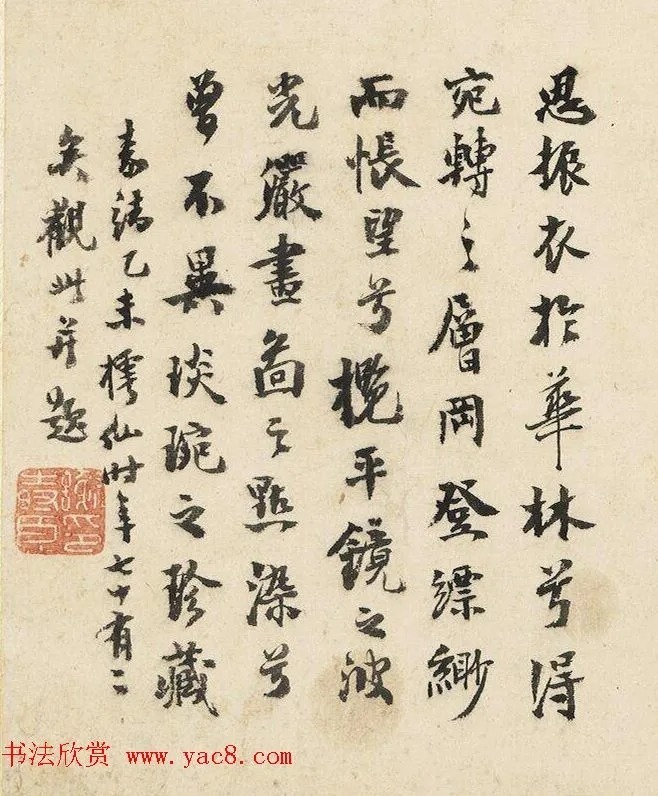 思振衣於華林兮得
宛轉之層岡登縹緲
而悵望兮攬平鏡之波
光嚴畫啚之點染兮
曾不異琰琬之珍藏
嘉靖乙未樗仙時年七十有二
矣觀此并題
书法欣赏 www.yac8.com